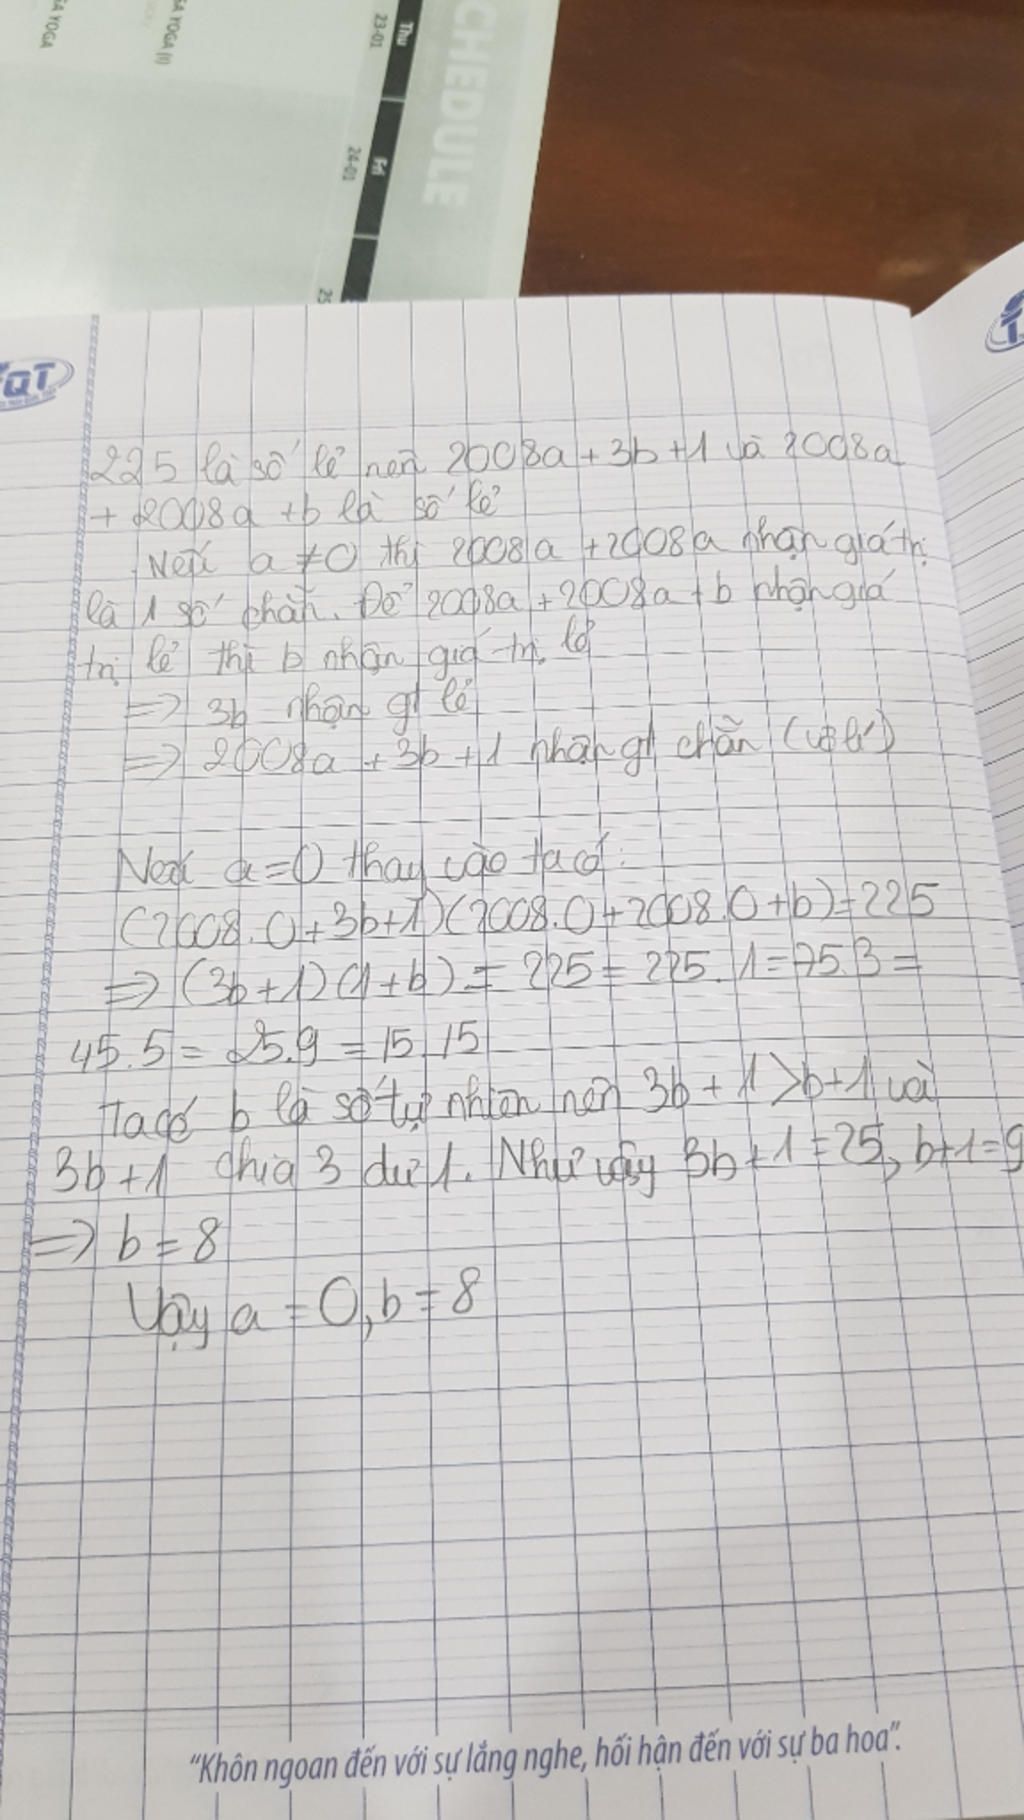 CHEDULE
Thu
23-01
Fri
24-01
25
GA YOGA (I)
GA YOGA
QT
T
225 là số lẻ nên 2008a + 3b + 1 và 2008a
+ 2008a + b là số lẻ
Nếu a ≠ 0 thì 2008a + 2008a nhận giá trị
là 1 số chẵn. Để 2008a + 2008a + b nhận giá
trị lẻ thì b nhận giá trị lẻ
=> 3b nhận gt lẻ
=> 2008a + 3b + 1 nhận gt chẵn (vô lí)
Nếu a = 0 thay vào ta có:
(2008.0 + 3b + 1)(2008.0 + 2008.0 + b) = 225
=> (3b + 1)(1 + b) = 225 = 225.1 = 75.3 =
45.5 = 25.9 = 15.15
Ta có b là số tự nhiên nên 3b + 1 > b + 1 và
3b + 1 chia 3 dư 1. Như vậy 3b + 1 = 25, b + 1 = 9
=> b = 8
Vậy a = 0, b = 8
"Khôn ngoan đến với sự lắng nghe, hối hận đến với sự ba hoa".